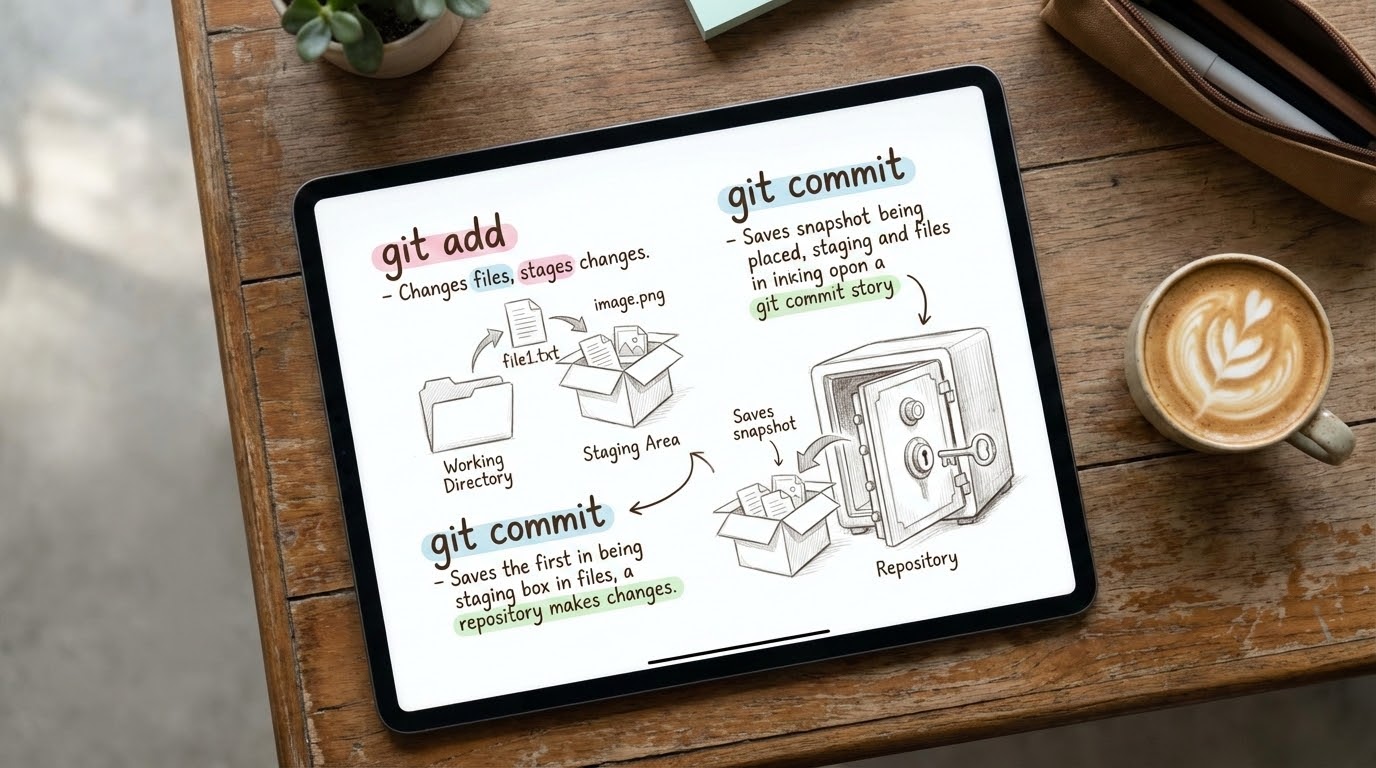 git add
- Changes files, stages changes.
image.png
file1.txt
Working
Directory
Staging Area
git commit
- Saves the first in being
staging box in files, a
repository makes changes.
git commit
- Saves snapshot being
placed, staging and files
in inking opon a
git commit story
Saves
snapshot
Repository